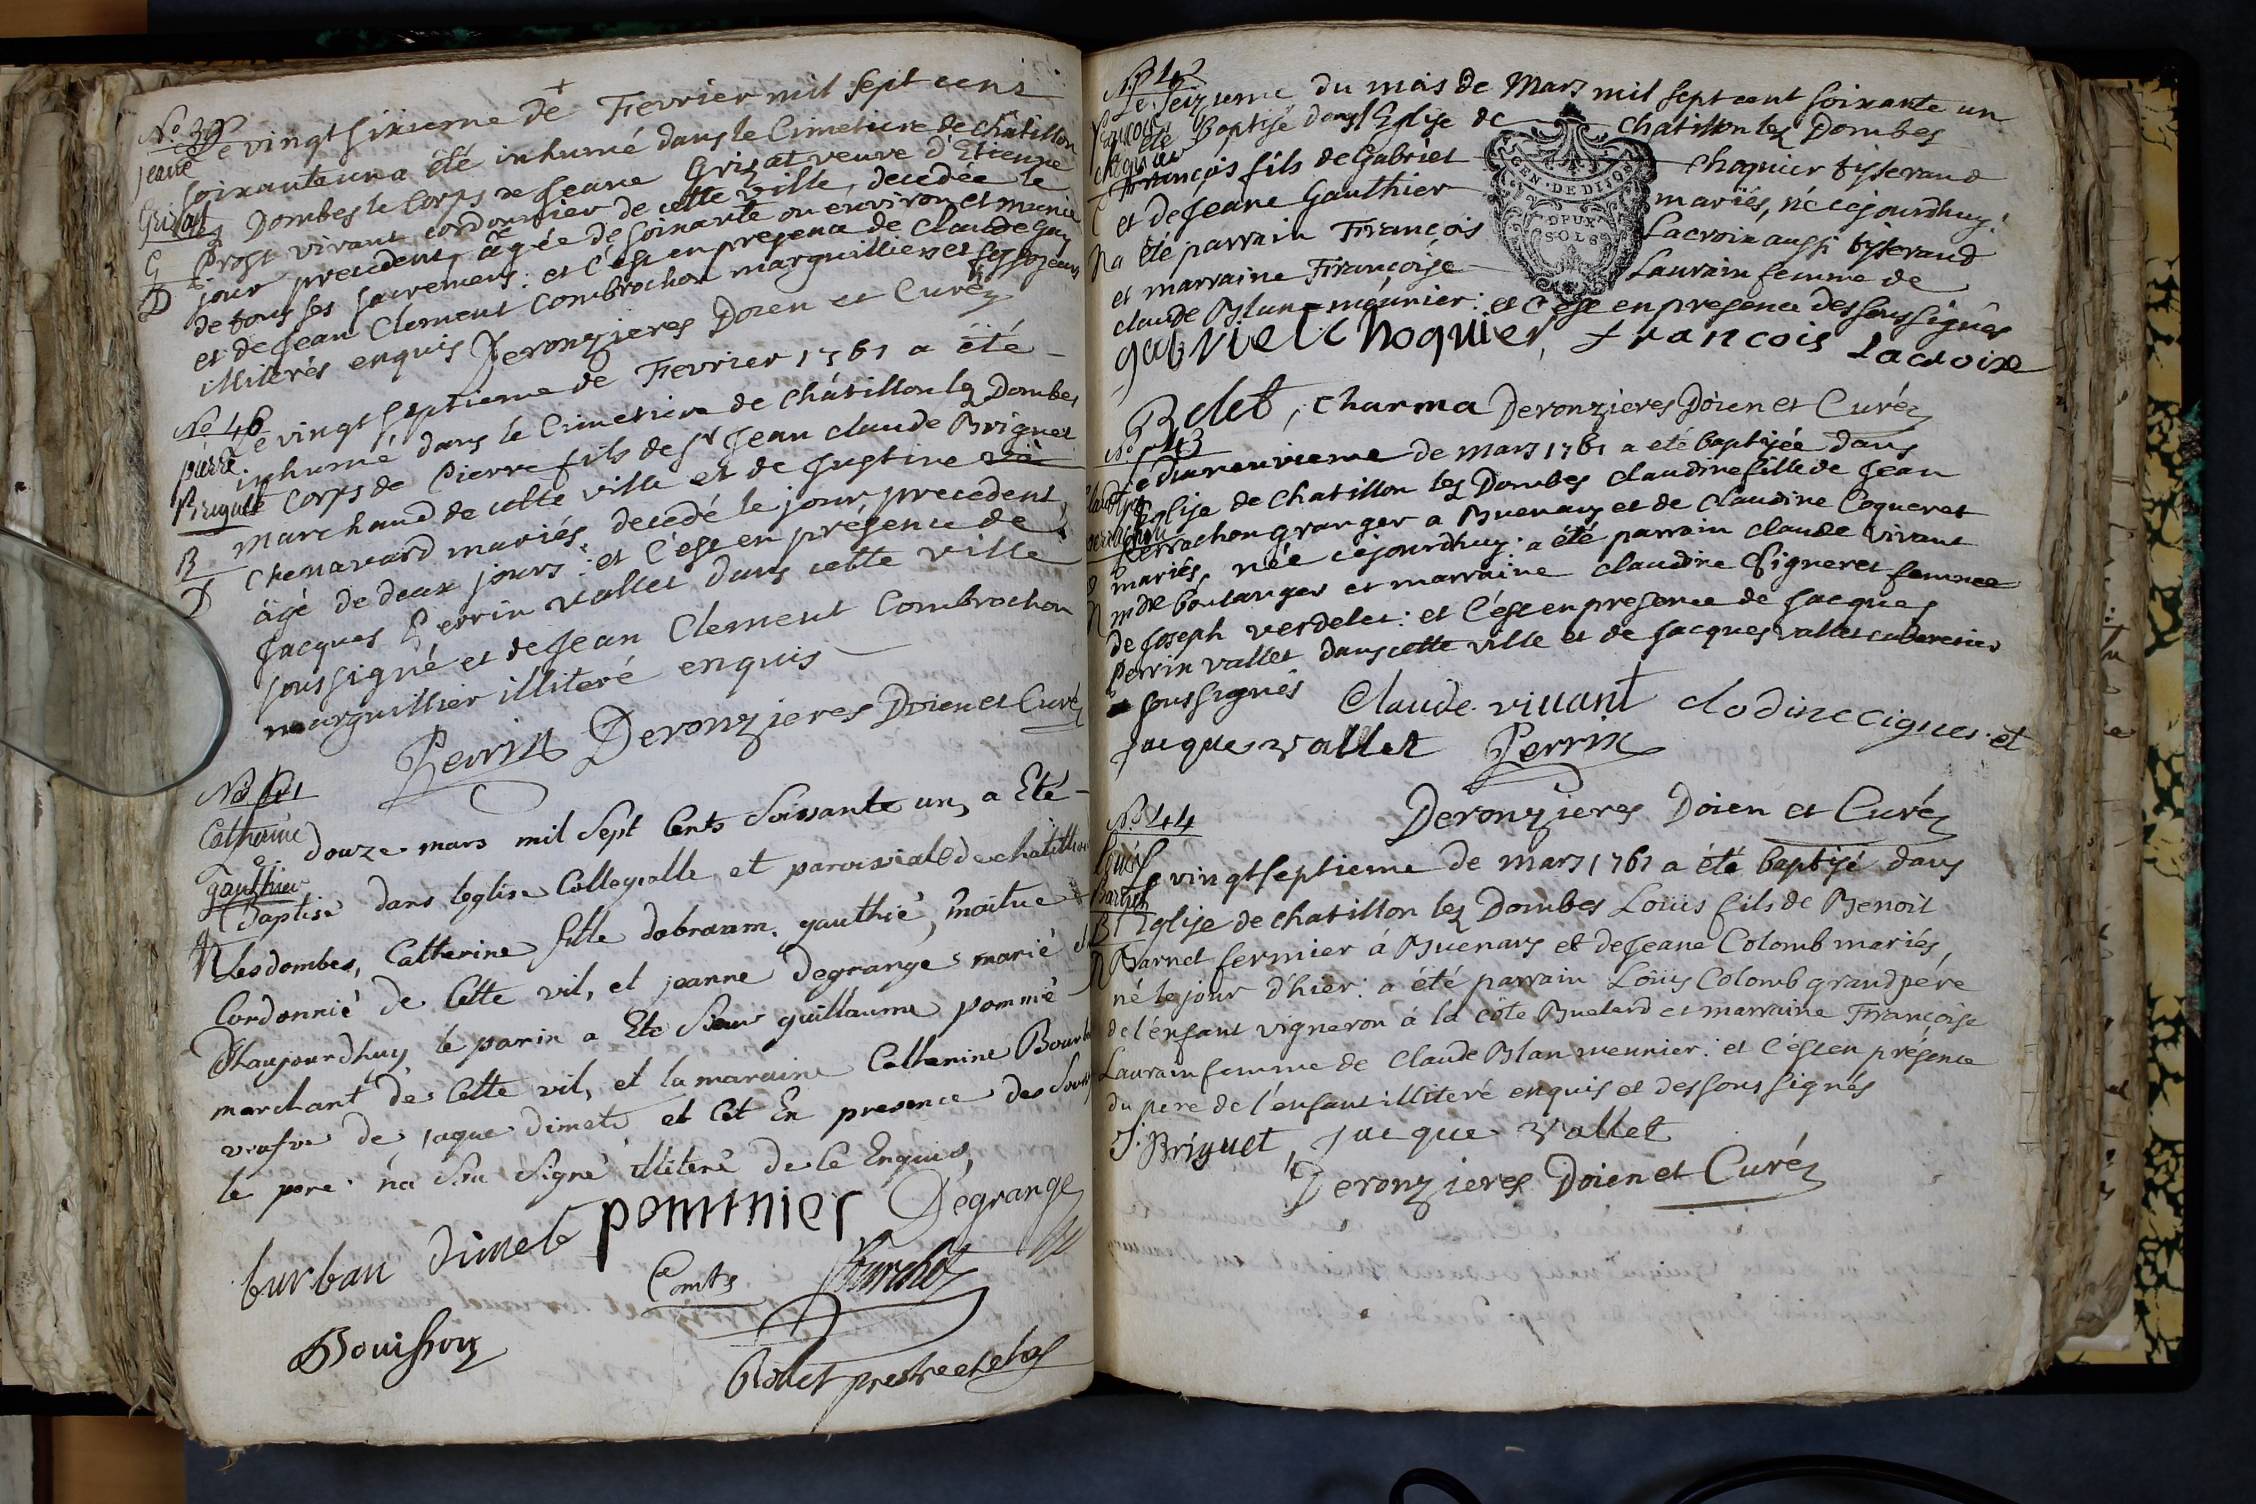 N.° 39
Le vingt sixieme de Fevrier mil sept cens
jeane
soixante un a été inhumé dans le Cimetiere de châtillon
Grisat
lez Dombes le Corps de Jeane Grizat veuve d'Etienne
Prost vivant cordonnier de cette ville, decedée le
G
jour precedent, âgée de soixante ou environ et munie
D
de tous ses sacremens: et c'est en presence de Claude Guy
et de Jean Clement Combrochon marguilliers et fossoyeurs
illiterés enquis Deronzieres Doien et Curé
N.° 40
Le vingt septieme de Fevrier 1761 a été
pierre
inhumé dans le Cimetiere de Châtillon lez Dombes
Briguet
le Corps de Pierre fils de Sr Jean claude Briguet
B
marchand de cette ville et de Justine
D
Chenavard mariés, decedé le jour precedent,
âgé de deux jours: et c'est en présence de
Jacques Perrin vallet dans cette ville
soussigné et de Jean Clement Combrochon
marguillier illiteré enquis
Perrin Deronzieres Doien et Curé
N.° 41
Catherine
Le douze mars mil Sept Cents Soissante un, a Eté
gauthier
Baptisé dans leglise Collegialle et paroissiale de chatillion
N
lesdombes, Catherine fille dabraam gauthié, maitue
Cordonnié de Cette vil, et jeanne Degrange marié
Dhaujourdhuy le parin a Ete Sieur guilliaume pommié
marchant de Cette vil, et la maraine Catherine
veafve de jaque dimets et Cet En presence des Sous
le pere na Seu Signé illiteré de Ce Enquis,
burban dimets pommier Degrange
Comts
Bouisson
prestre
N.° 42
Le Seizieme du mois de Mars mil sept cent soixante un
françois
a été Baptisé dans l'Eglise de chatillon lez Dombes
choquier
François fils de Gabriel choquier tisserand
C
et de Jeane Gauthier mariés, né cejourdhuy:
N
a été parrain François Lacroix aussi tisserand
et marraine Françoise Laurain femme de
claude Blan meunier: et c'est en presence des soussignés
GEN. DE DIJON
DEUX
SOLS
gabriel choquier, francois Lacroix
Belet, charma Deronzieres Doien et Curé
N.° 43
Le dixneuvieme de mars 1761 a été baptisée dans
Claudine
l'Eglise de chatillon lez Dombes claudine fille de Jean
perrachon
perrachon granger a Buenans et de claudine Coqueret
mariés, née cejourdhuy: a été parrain claude vivant
N
mde boulanger et marraine claudine Signeret femme
de joseph verdelet: et c'est en presence de Jacques
perrin vallet dans cette ville et de jacques vallet cabaretier
soussignés Claude vivant clodine
jacque vallet Perrin
Deronzieres Doien et Curé
N.° 44
Loüis
Le vingt septieme de mars 1761 a été baptisé dans
Barnet
B
l'Eglise de chatillon lez Dombes Loüis fils de Benoit
N
Barnet fermier à Buenans et de Jeane Colomb mariés,
né le jour d'hier: a été parrain Loüis Colomb grand pere
de l'enfant vigneron à la côte Buelard et marraine Françoise
Laurain femme de claude Blan meunier: et c'est en présence
du pere de l'enfant illiteré enquis et des soussignés
J. Briguet, jacque vallet
Deronzieres Doien et Curé